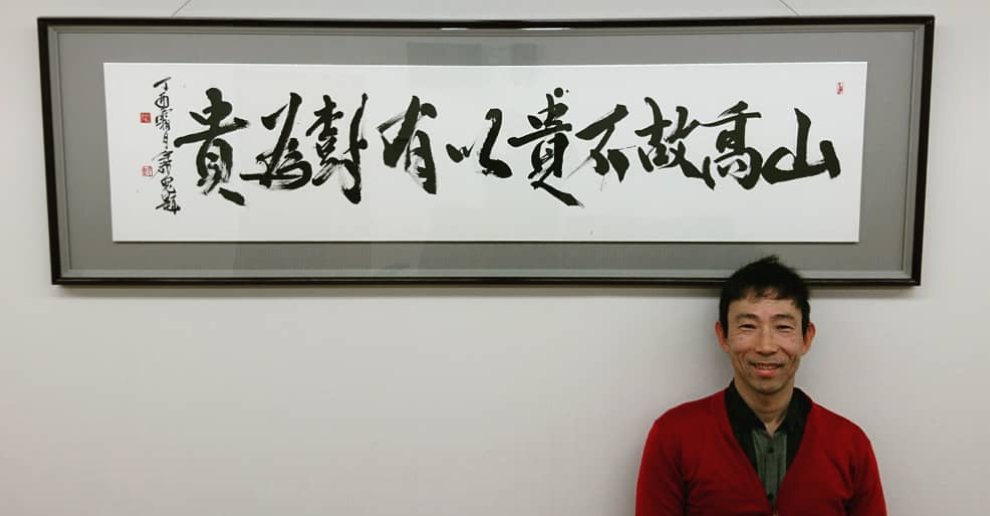 山高故不貴以有樹為貴
丁酉霜月